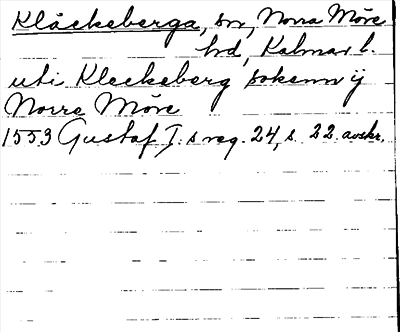 Kläckeberga, sn, Norra Möre
hd, Kalmar l.
uti Kleckeberg sokenn ÿ
Norre Möre
1553 Gustaf I:s reg. 24, s. 22. avskr.